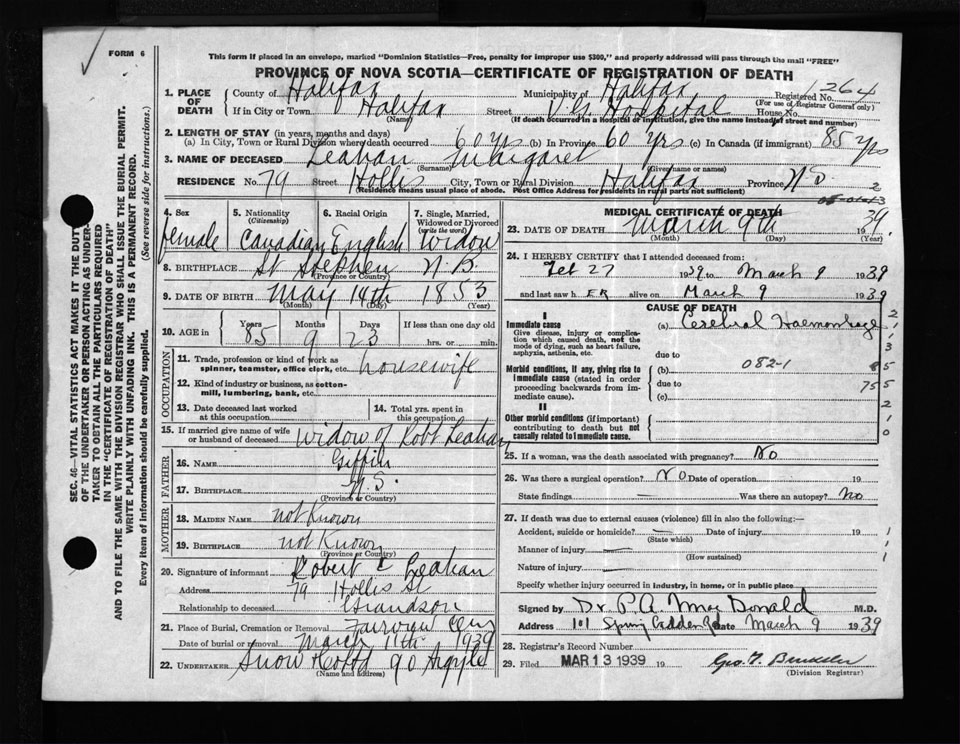 FORM 6
This form if placed in an envelope, marked "Dominion Statistics—Free, penalty for improper use $300," and properly addressed will pass through the mail "FREE"
PROVINCE OF NOVA SCOTIA—CERTIFICATE OF REGISTRATION OF DEATH
1. PLACE OF DEATH
County of Halifax Municipality of Halifax Registered No. 264
(For use of Registrar General only)
If in City or Town Halifax Street V.G. Hospital House No.
(Name) (If death occurred in a hospital or institution, give the name instead of street and number)
2. LENGTH OF STAY (in years, months and days)
(a) In City, Town or Rural Division where death occurred 60 yrs (b) In Province 60 yrs (c) In Canada (if immigrant) 85 yrs
3. NAME OF DECEASED Leahan Margaret
(Surname) (Given name or names)
RESIDENCE No. 79 Street Hollis City, Town or Rural Division Halifax Province N.S.
Residence means usual place of abode. Post Office Address for residents in rural parts not sufficient)
2
4. Sex female
5. Nationality (Citizenship) Canadian
6. Racial Origin English
7. Single, Married, Widowed or Divorced (write the word) Widow
8. BIRTHPLACE St Stephen N.B.
(Province or Country)
9. DATE OF BIRTH May 14th 1853
(Month) (Day) (Year)
10. AGE in Years Months Days If less than one day old
85 9 23 hrs. or min.
OCCUPATION
11. Trade, profession or kind of work as spinner, teamster, office clerk, etc. housewife
12. Kind of industry or business, as cotton-mill, lumbering, bank, etc.
13. Date deceased last worked at this occupation
14. Total yrs. spent in this occupation
15. If married give name of wife or husband of deceased widow of Robt Leahan
FATHER
16. NAME Giffin
17. BIRTHPLACE N.S.
(Province or Country)
MOTHER
18. MAIDEN NAME not Known
19. BIRTHPLACE not Known
(Province or Country)
20. Signature of informant Robert E Leahan
Address 79 Hollis St
Relationship to deceased Grandson
21. Place of Burial, Cremation or Removal Fairview
Date of burial or removal March 11th 1939
22. UNDERTAKER Snow 90 Argyle
(Name and address)
MEDICAL CERTIFICATE OF DEATH
23. DATE OF DEATH March 9th 1939.
(Month) (Day) (Year)
24. I HEREBY CERTIFY that I attended deceased from:
Feb 27 1939 to March 9 1939
and last saw h ER alive on March 9 1939
CAUSE OF DEATH
I
Immediate cause (a) Cerebral Haemorrhage
Give disease, injury or complication which caused death, not the mode of dying, such as heart failure, asphyxia, asthenia, etc.
due to
Morbid conditions, if any, giving rise to immediate cause (stated in order proceeding backwards from immediate cause). (b) 082-1
due to
(c)
II
Other morbid conditions (if important) contributing to death but not causally related to immediate cause.
25. If a woman, was the death associated with pregnancy? No
26. Was there a surgical operation? NO Date of operation 19
State findings Was there an autopsy? No
27. If death was due to external causes (violence) fill in also the following:—
Accident, suicide or homicide? Date of injury 19
(State which)
Manner of injury
(How sustained)
Nature of injury
Specify whether injury occurred in industry, in home, or in public place
Signed by Dr. P.A. MacDonald M.D.
Address 101 Spring Garden Rd Date March 9 1939
28. Registrar's Record Number
29. Filed MAR 13 1939 19
(Division Registrar)
SEC. 46—VITAL STATISTICS ACT MAKES IT THE DUTY OF THE UNDERTAKER OR PERSON ACTING AS UNDERTAKER TO OBTAIN ALL THE PARTICULARS REQUIRED IN THE "CERTIFICATE OF REGISTRATION OF DEATH" AND TO FILE THE SAME WITH THE DIVISION REGISTRAR WHO SHALL ISSUE THE BURIAL PERMIT.
WRITE PLAINLY WITH UNFADING INK. THIS IS A PERMANENT RECORD.
Every item of information should be carefully supplied. (See reverse side for instructions.)